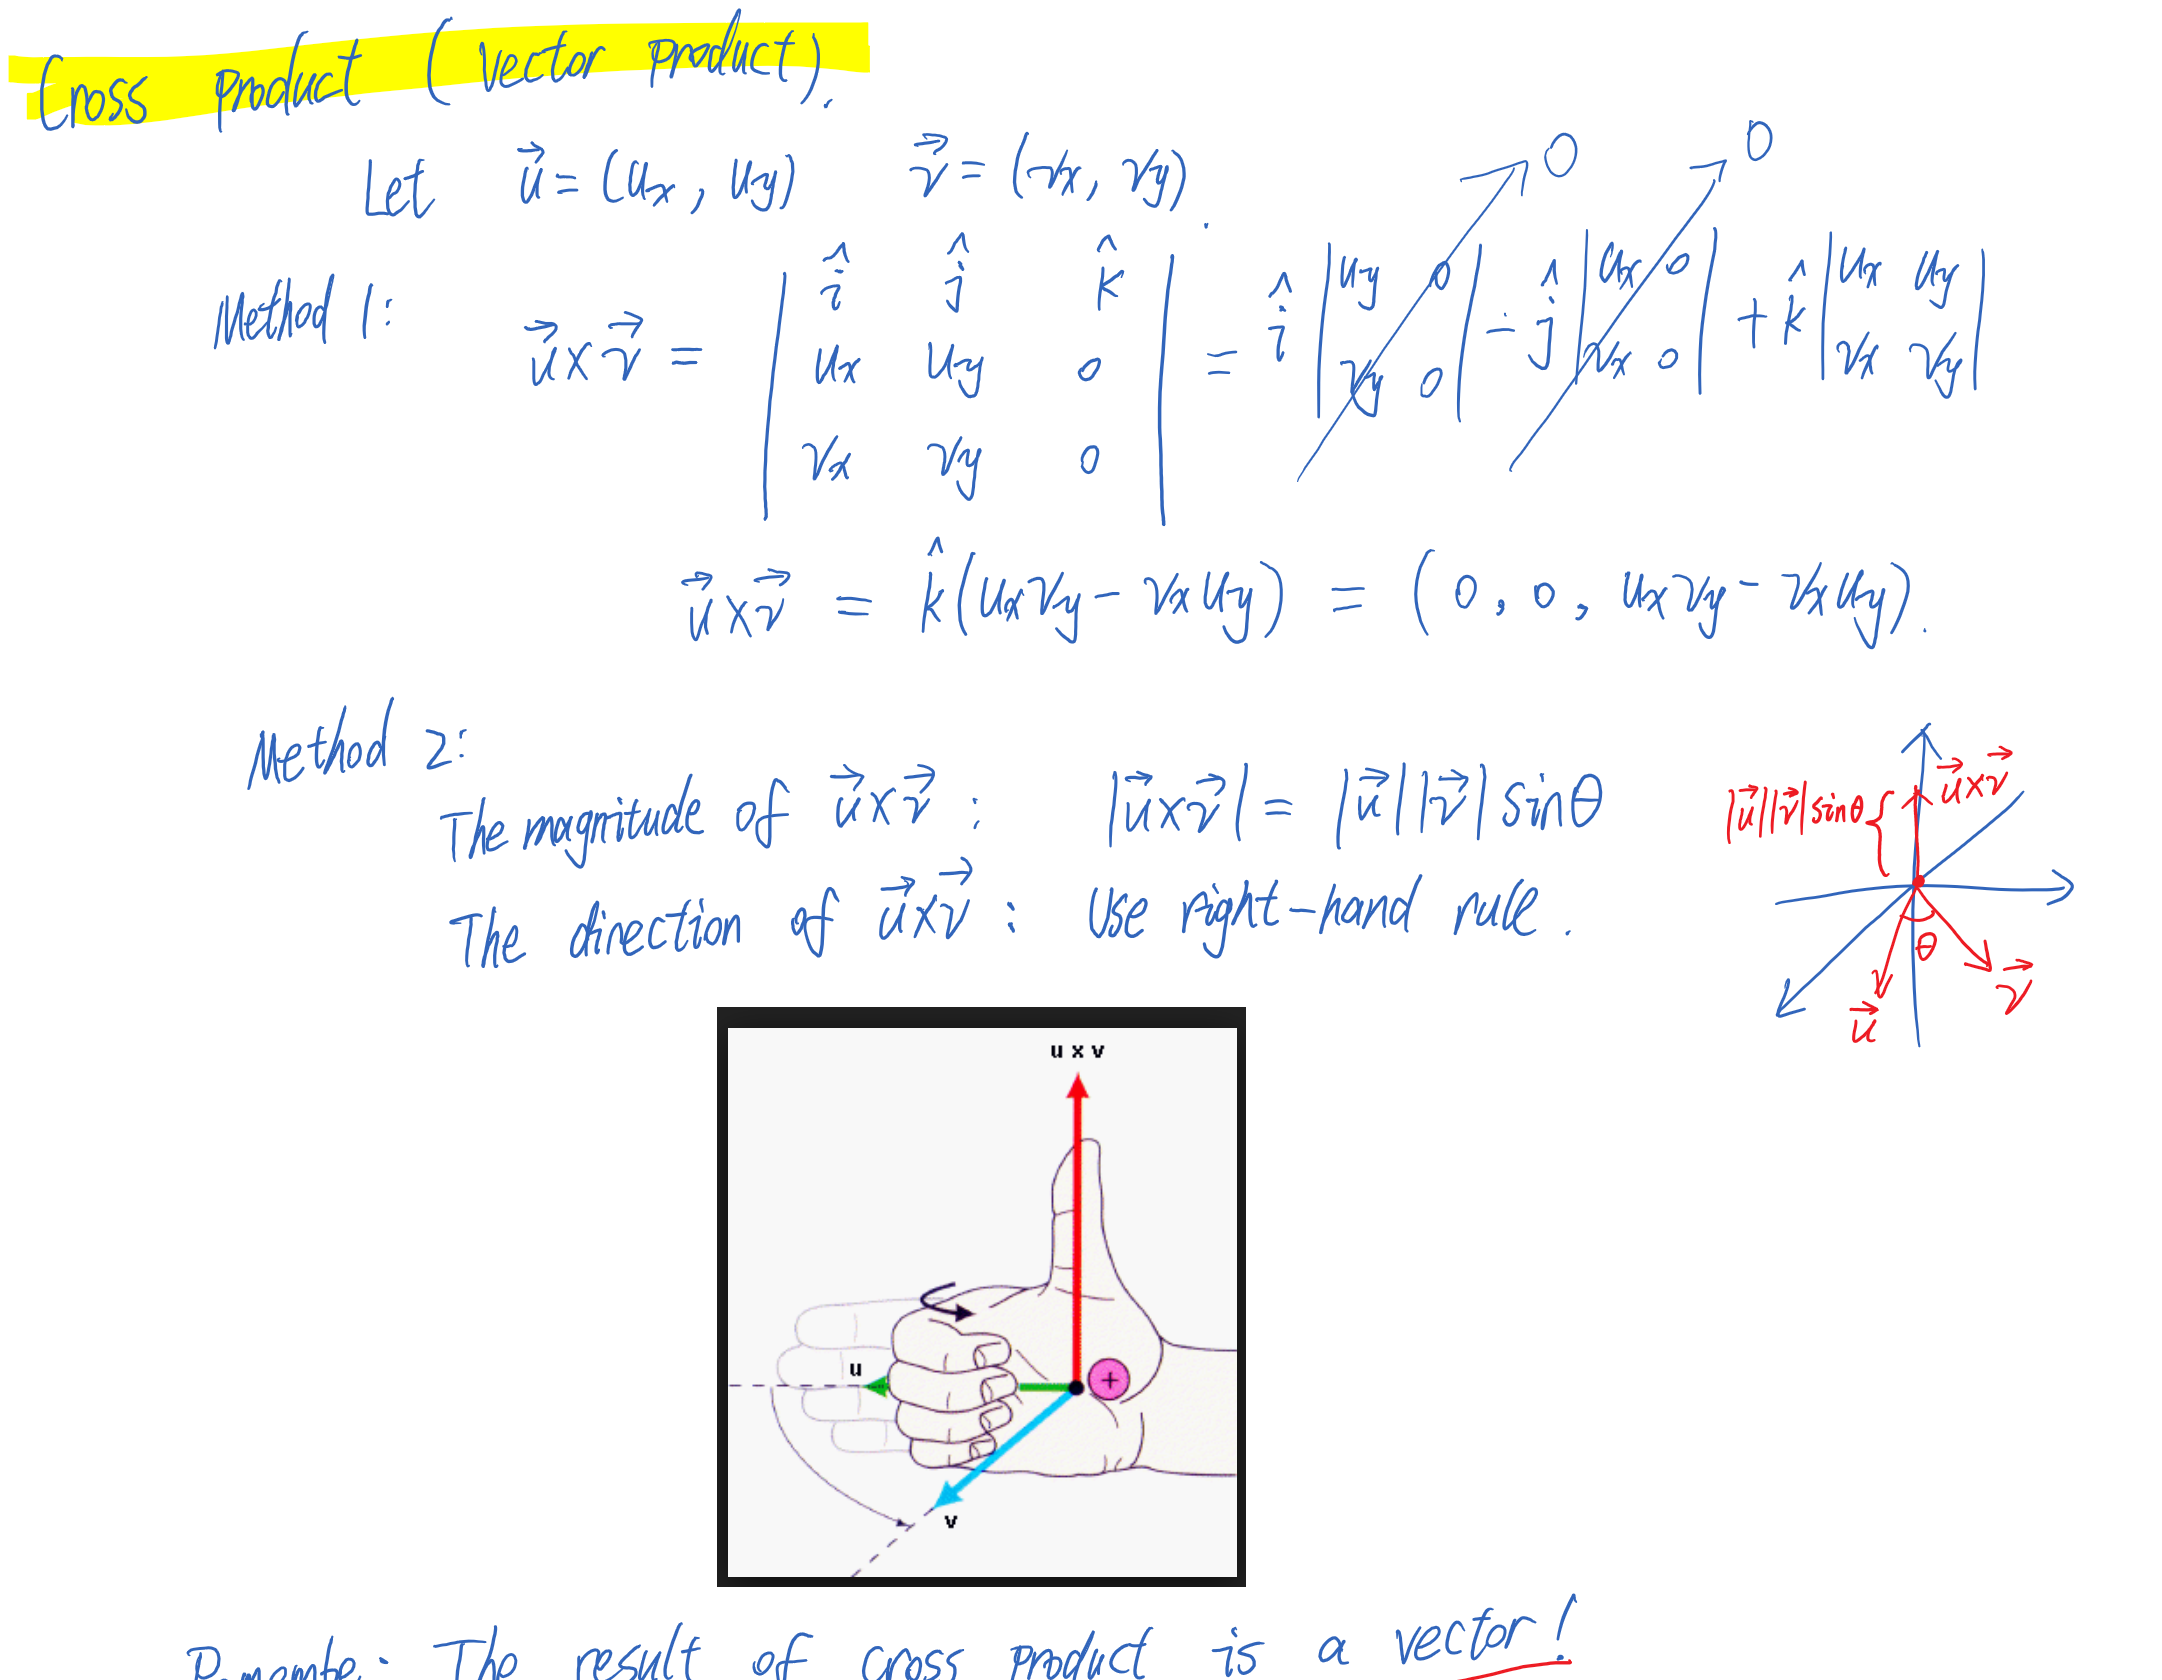 Cross product (vector product).
Let u⃗ = (ux, uy) v⃗ = (vx, vy).
Method 1:
u⃗ × v⃗ = | î ĵ k̂ ; ux uy 0 ; vx vy 0 | = î | uy 0 ; vy 0 | → 0 - ĵ | ux 0 ; vx 0 | → 0 + k̂ | ux uy ; vx vy |
u⃗ × v⃗ = k̂ (ux vy - vx uy) = (0, 0, ux vy - vx uy).
Method 2:
The magnitude of u⃗ × v⃗ : |u⃗ × v⃗| = |u⃗||v⃗| sinθ
The direction of u⃗ × v⃗ : Use right-hand rule.
|u⃗||v⃗| sinθ
u⃗ × v⃗
θ
u⃗
v⃗
u x v
u
+
v
The result of cross product is a vector!